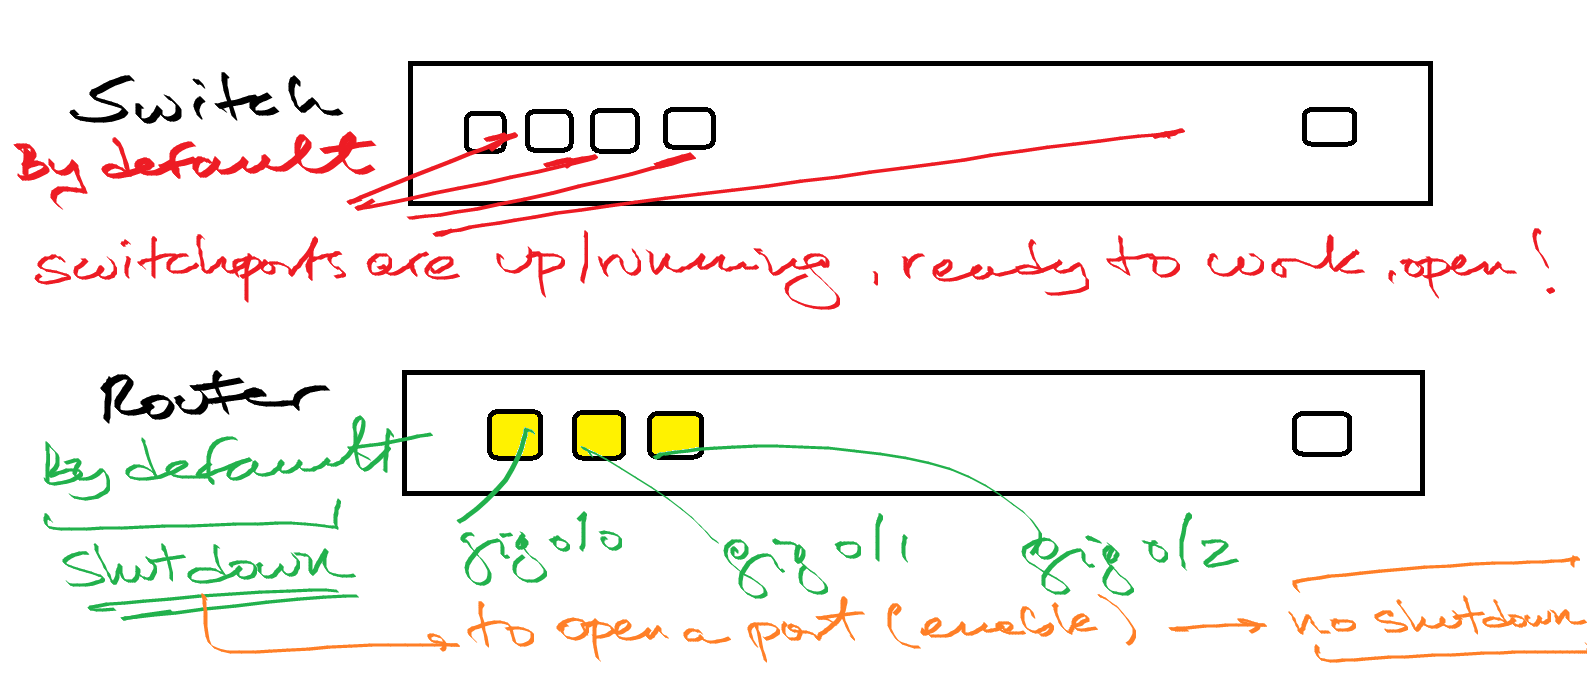 Switch
By default
switchports are up/running, ready to work, open!
Router
By default
shutdown
gig 0/0
gig 0/1
gig 0/2
to open a port (enable) → no shutdown